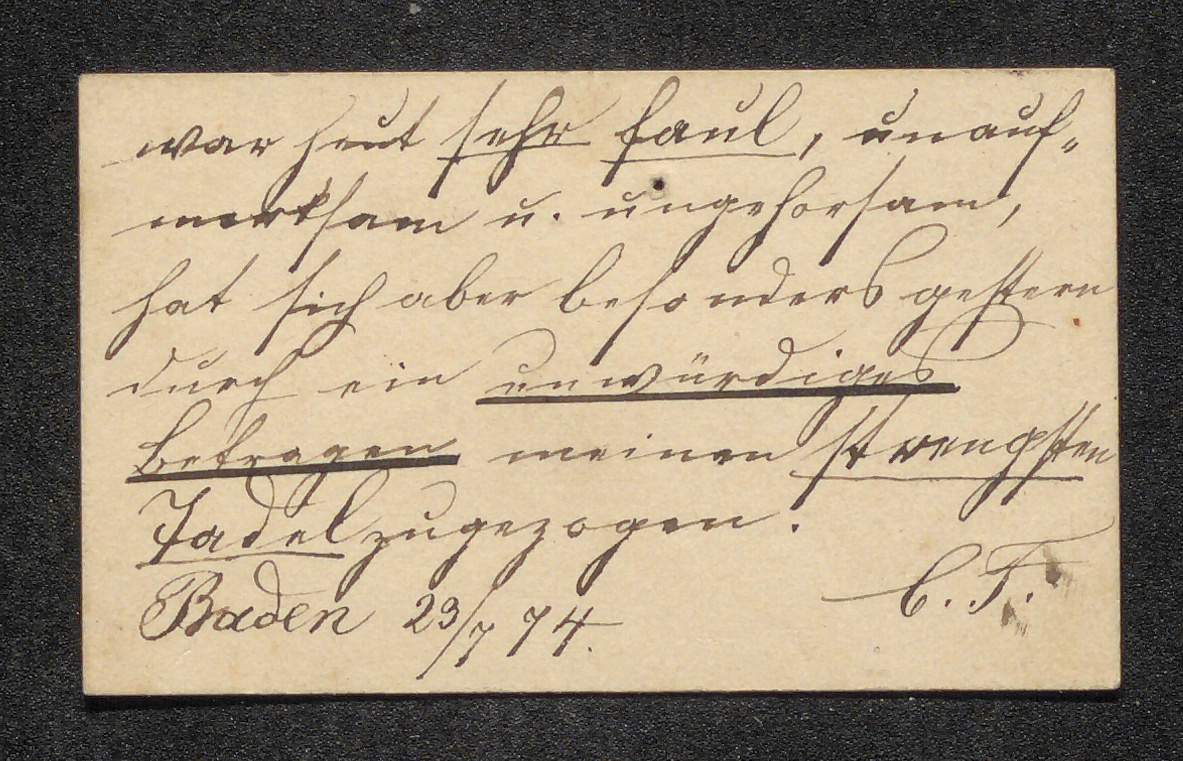 war heut sehr faul, unauf-
merksam u. ungehorsam,
hat sich aber besonders gestern
durch ein unwürdiges
Betragen meinen strengsten
Tadel zugezogen.
Baden 23/7 74. C. F.